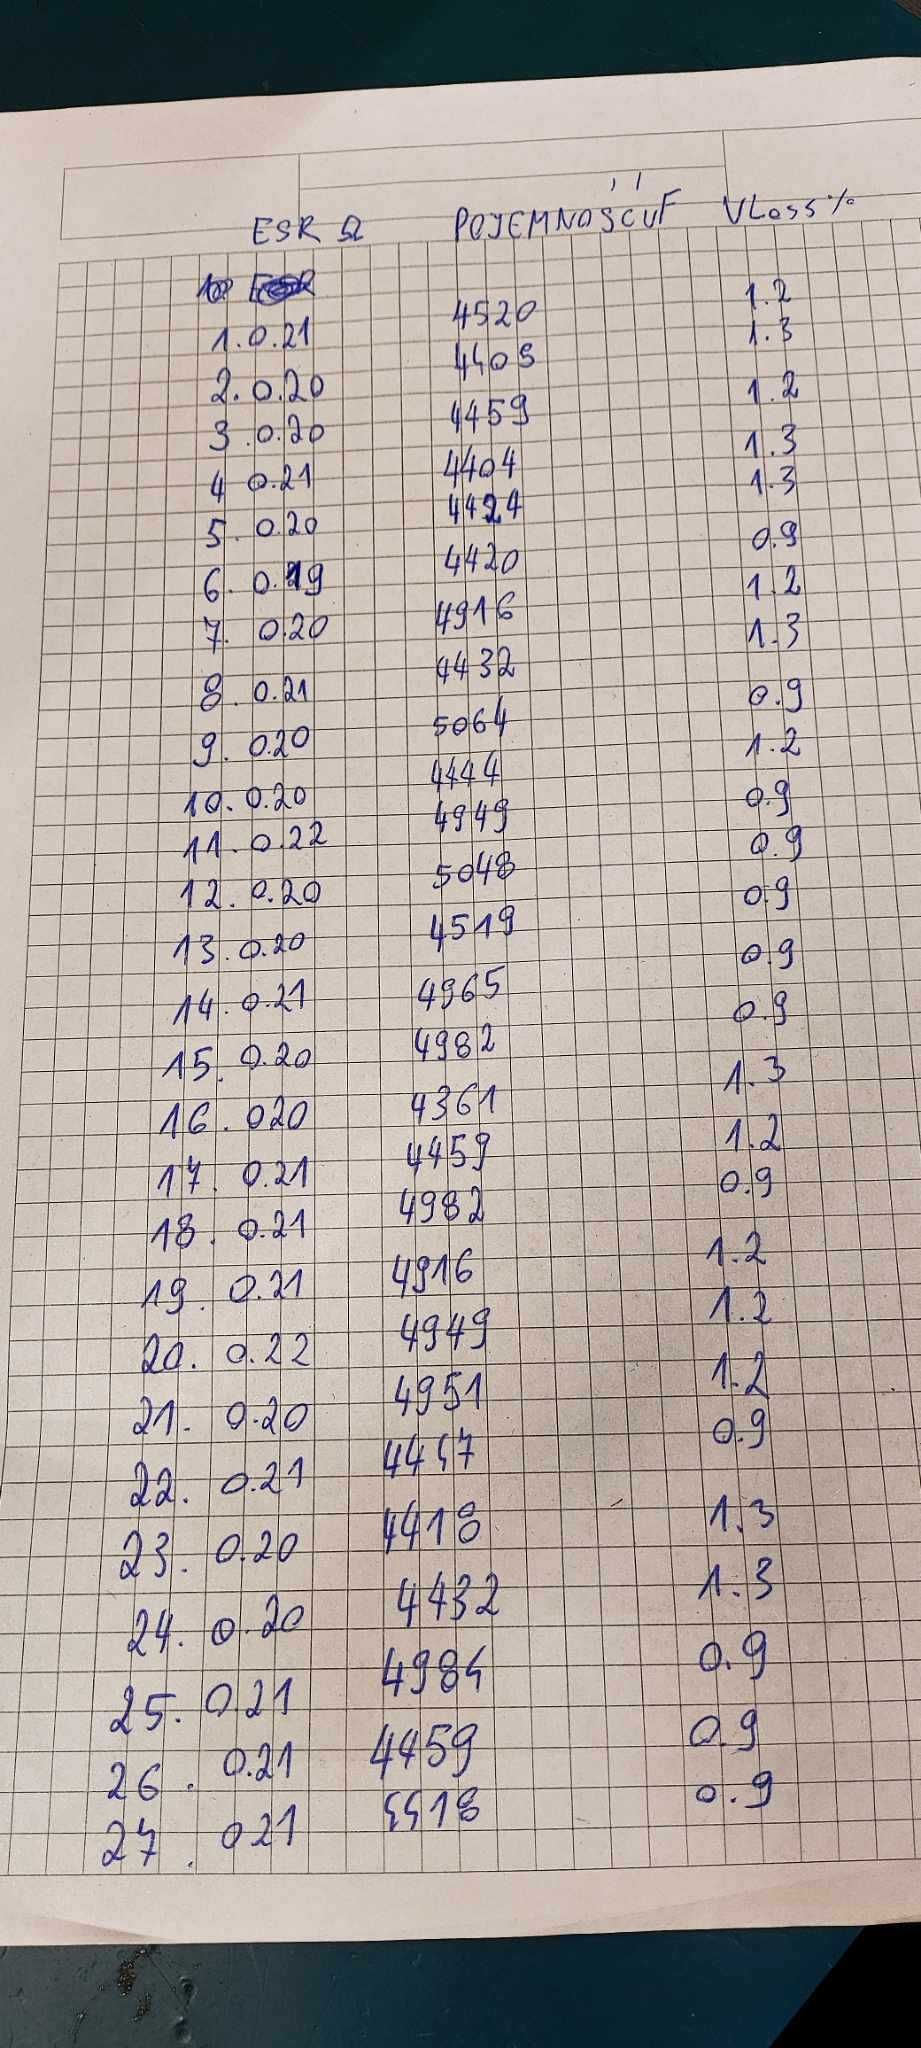 ESR Ω POJEMNOŚĆ uF VLoss %
1. 0.21 4520 1.2
2. 0.20 4409 1.3
3. 0.20 4459 1.2
4 0.21 4404 1.3
5. 0.20 4424 1.3
6. 0.19 4420 0.9
7. 0.20 4916 1.2
8. 0.21 4432 1.3
9. 0.20 5064 0.9
10. 0.20 4444 1.2
11. 0.22 4949 0.9
12. 0.20 5048 0.9
13. 0.20 4519 0.9
14. 0.21 4965 0.9
15. 0.20 4982 0.9
16. 020 4361 1.3
17. 0.21 4459 1.2
18. 0.21 4982 0.9
19. 0.21 4916 1.2
20. 0.22 4949 1.2
21. 0.20 4951 1.2
22. 0.21 4447 0.9
23. 0.20 4418 1.3
24. 0.20 4432 1.3
25. 0.21 4984 0.9
26. 0.21 4459 0.9
27. 021 4418 0.9